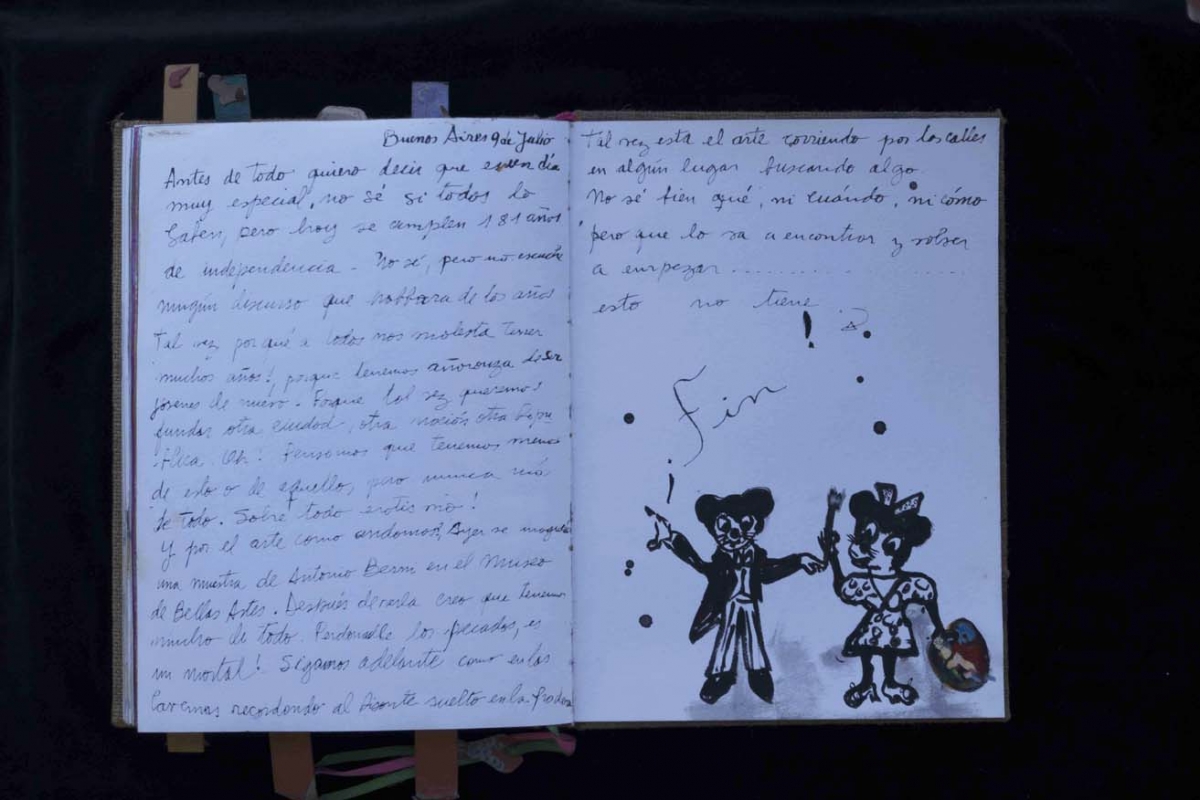 Buenos Aires 9 de Julio
Antes de todo quiero decir que es un día
muy especial, no sé si todos lo
saben, pero hoy se cumplen 181 años
de independencia - No sé, pero no escuché
ningún discurso que hablara de los años
Tal vez porqué a todos nos molesta tener
muchos años!, porque tenemos añoranza de ser
jóvenes de nuevo. Porque tal vez queremos
fundar otra ciudad, otra nación otra
Pensamos que tenemos menos
de esto o de aquello, pero nunca
de todo. Sobre todo
Y por el arte como andamos? Ayer se
una muestra de Antonio Berni en el Museo
de Bellas Artes. Después de verla creo que tenemos
mucho de todo. Perdonadle los pecados, es
un mortal! Sigamos adelante como en las
recordando al suelto en la
Tal vez está el arte corriendo por las calles
en algún lugar buscando algo.
No sé bien qué, ni cuándo, ni cómo
pero que lo va a encontrar y volver
a empezar ..................
esto no tiene
Fin